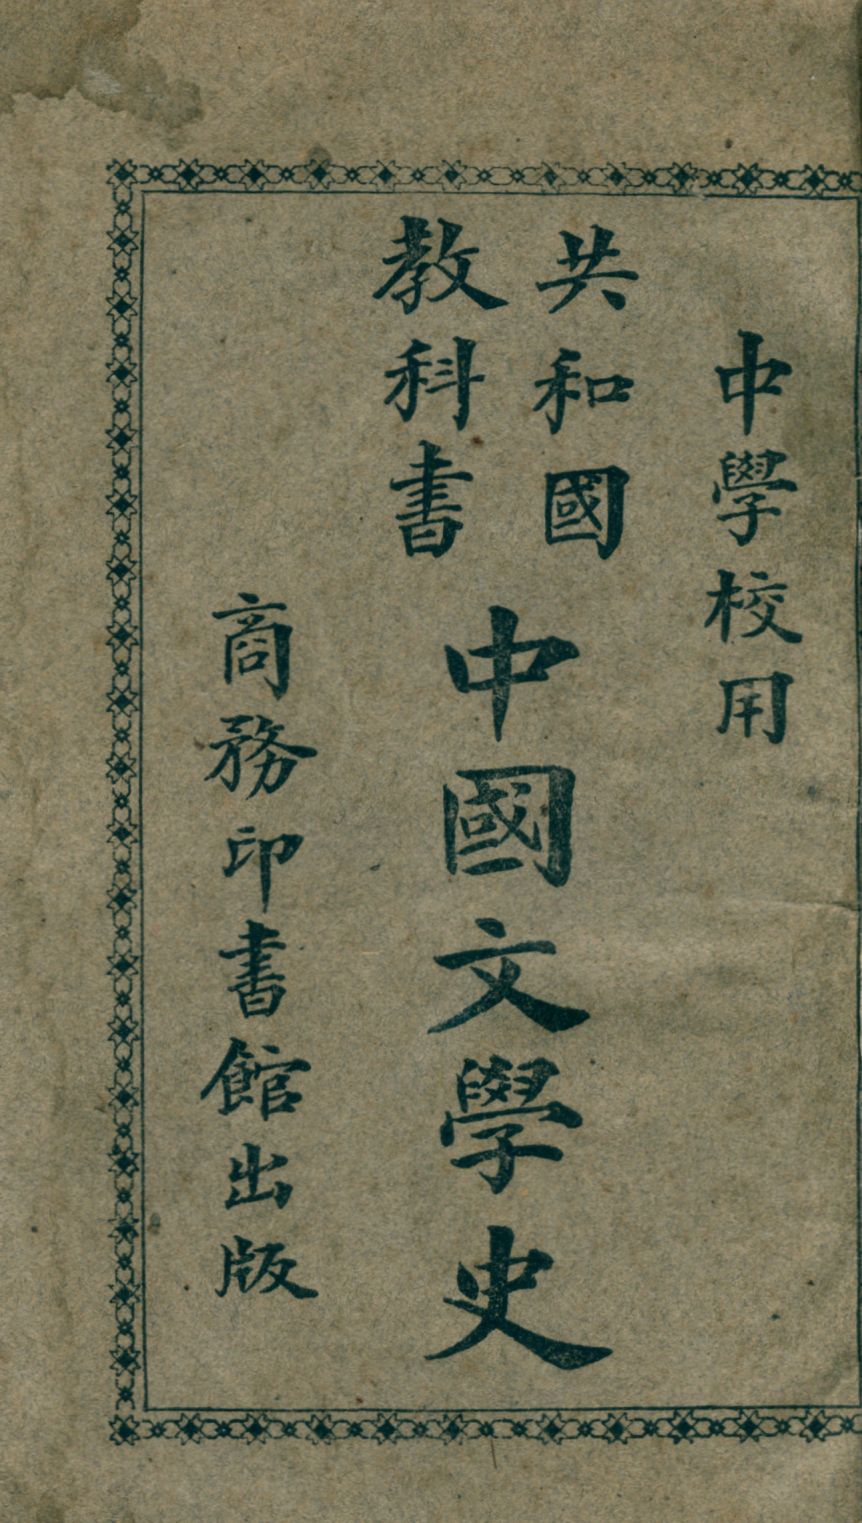 中學校用
共和國
教科書
中國文學史
商務印書館出版